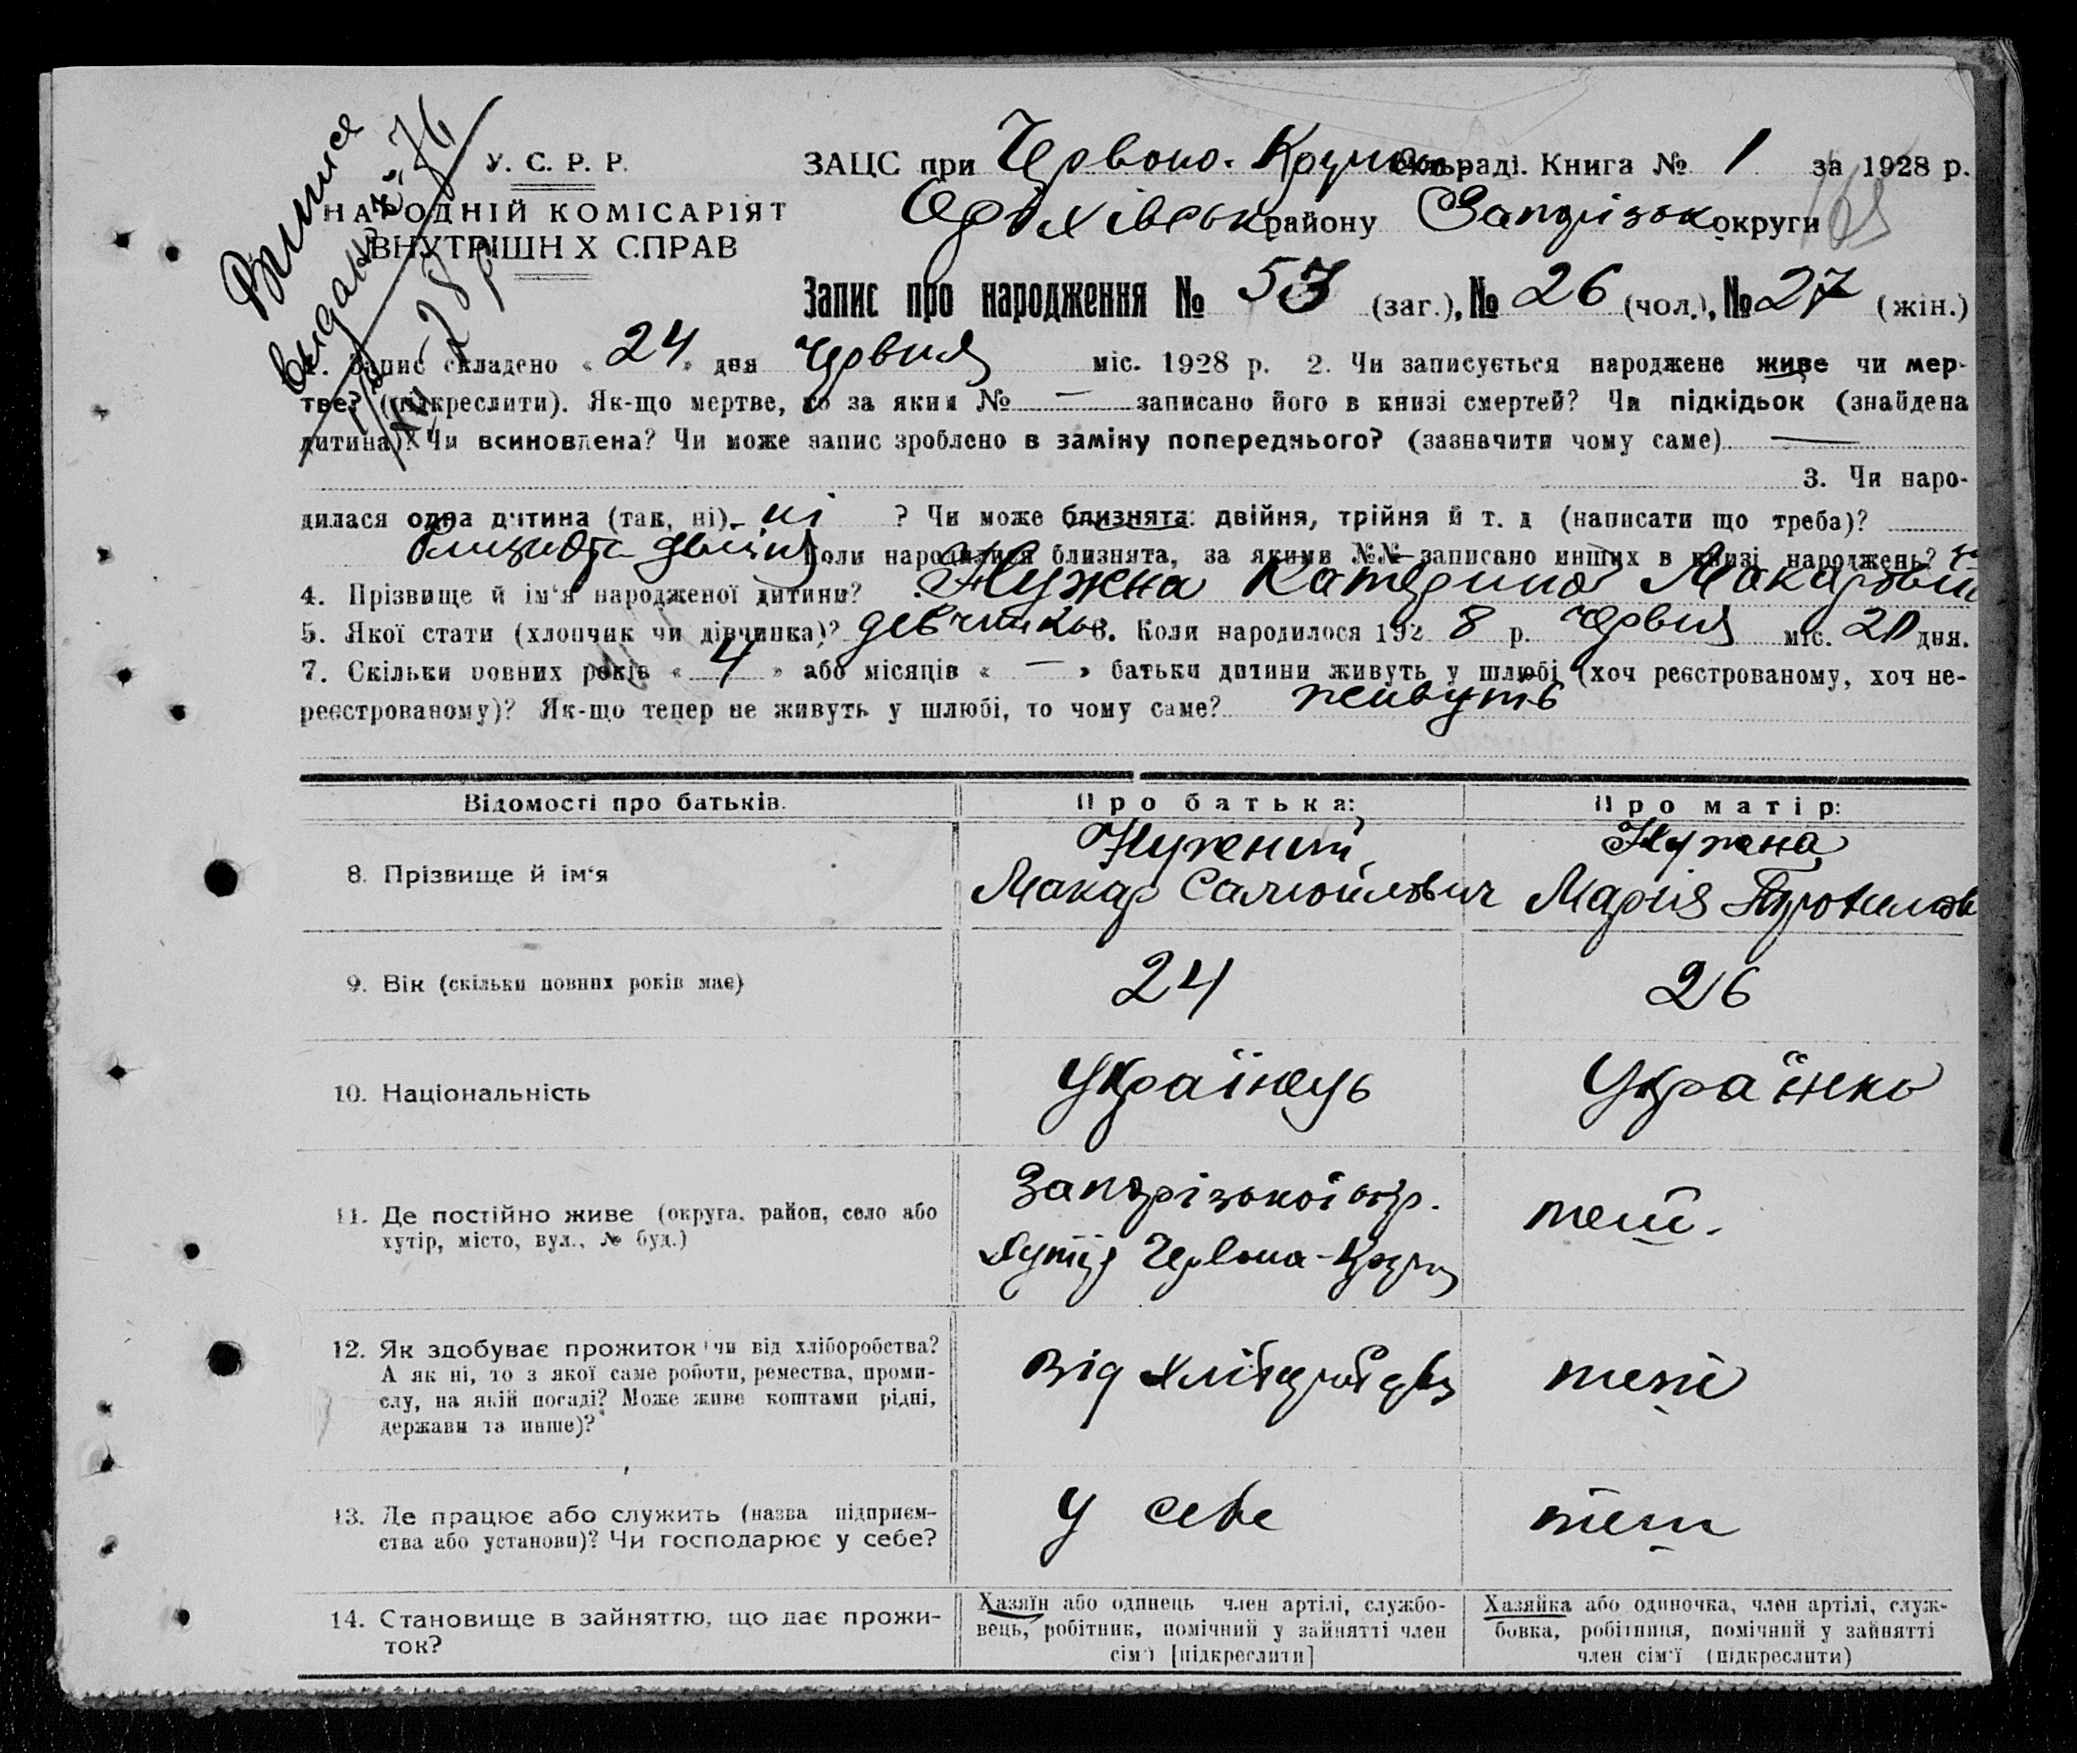 Випис
видано
У. С. Р. Р.
НАРОДНІЙ КОМІСАРІЯТ
ВНУТРІШН Х СПРАВ
ЗАЦС при Червоно-Криж сільраді. Книга № 1 за 1928 р.
Оріхівськ району Запорізьк округи
Запис про народження № 53 (заг.), № 26 (чол.), № 27 (жін.)
1. Запис складено « 24 » дня Червня міс. 1928 р. 2. Чи записується народжене живе чи мер-
тве? (підкреслити). Як-що мертве, то за яким № — записано його в книзі смертей? Чи підкідьок (знайдена
дитина)? Чи всиновлена? Чи може запис зроблено в заміну попереднього? (зазначити чому саме) —
3. Чи наро-
дилася одна дитина (так, ні) ні ? Чи може близнята: двійня, трійня й т. д (написати що треба)?
близнята двійня Коли народилися близнята, за якими №№ записано инших в книзі народжень?
4. Прізвище й ім'я народженої дитини? Нужна Катерина Макаровна
5. Якої стати (хлопчик чи дівчинка)? девчинка 6. Коли народилося 192 8 р. Червня міс. 20 дня.
7. Скільки повних років « 4 » або місяців « — » батьки дитини живуть у шлюбі (хоч реєстрованому, хоч не-
реєстрованому)? Як-що тепер не живуть у шлюбі, то чому саме? живуть
Відомості про батьків. Про батька: Про матір:
Нужний Нужна
8. Прізвище й ім'я Макар Самойлович Марія Трохимов
9. Вік (скільки повних років має) 24 26
10. Національність Українець Українка
11. Де постійно живе (округа, район, село або
хутір, місто, вул., № буд.)
Запорізької окр. теш.
Хутір Червона-
12. Як здобуває прожиток чи від хліборобства?
А як ні, то з якої саме роботи, ремества, проми-
слу, на якій посаді? Може живе коштами рідні,
держави та инше)?
Від хліборобства теж
13. Де працює або служить (назва підприєм-
ства або установи)? Чи господарює у себе?
У себе теш
14. Становище в зайняттю, що дає прожи-
ток?
Хазяїн або одинець член артілі, службо-
вець, робітник, помічний у зайнятті член
сім'ї [підкреслити]
Хазяйка або одиночка, член артілі, служ-
бовка, робітниця, помічний у зайнятті
член сім'ї (підкреслити)